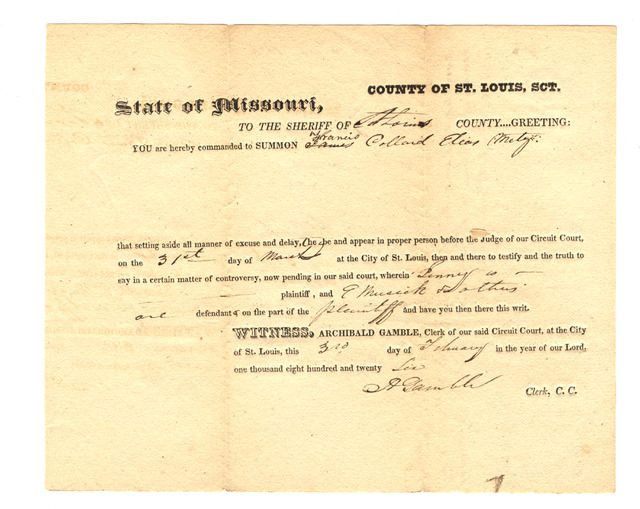 COUNTY OF ST. LOUIS, SCT.
State of Missouri,
TO THE SHERIFF OF St Louis COUNTY....GREETING:
Francis
YOU are hereby commanded to SUMMON James Collard Elias Metz.
that setting aside all manner of excuse and delay, he be and appear in proper person before the Judge of our Circuit Court,
on the 31st day of March at the City of St. Louis, then and there to testify and the truth to
say in a certain matter of controversy, now pending in our said court, wherein is
plaintiff, and E Musick & others
are defendants on the part of the plaintiff and have you then there this writ.
WITNESS, ARCHIBALD GAMBLE, Clerk of our said Circuit Court, at the City
of St. Louis, this 3rd day of February in the year of our Lord,
one thousand eight hundred and twenty Six
A Gamble Clerk, C. C.